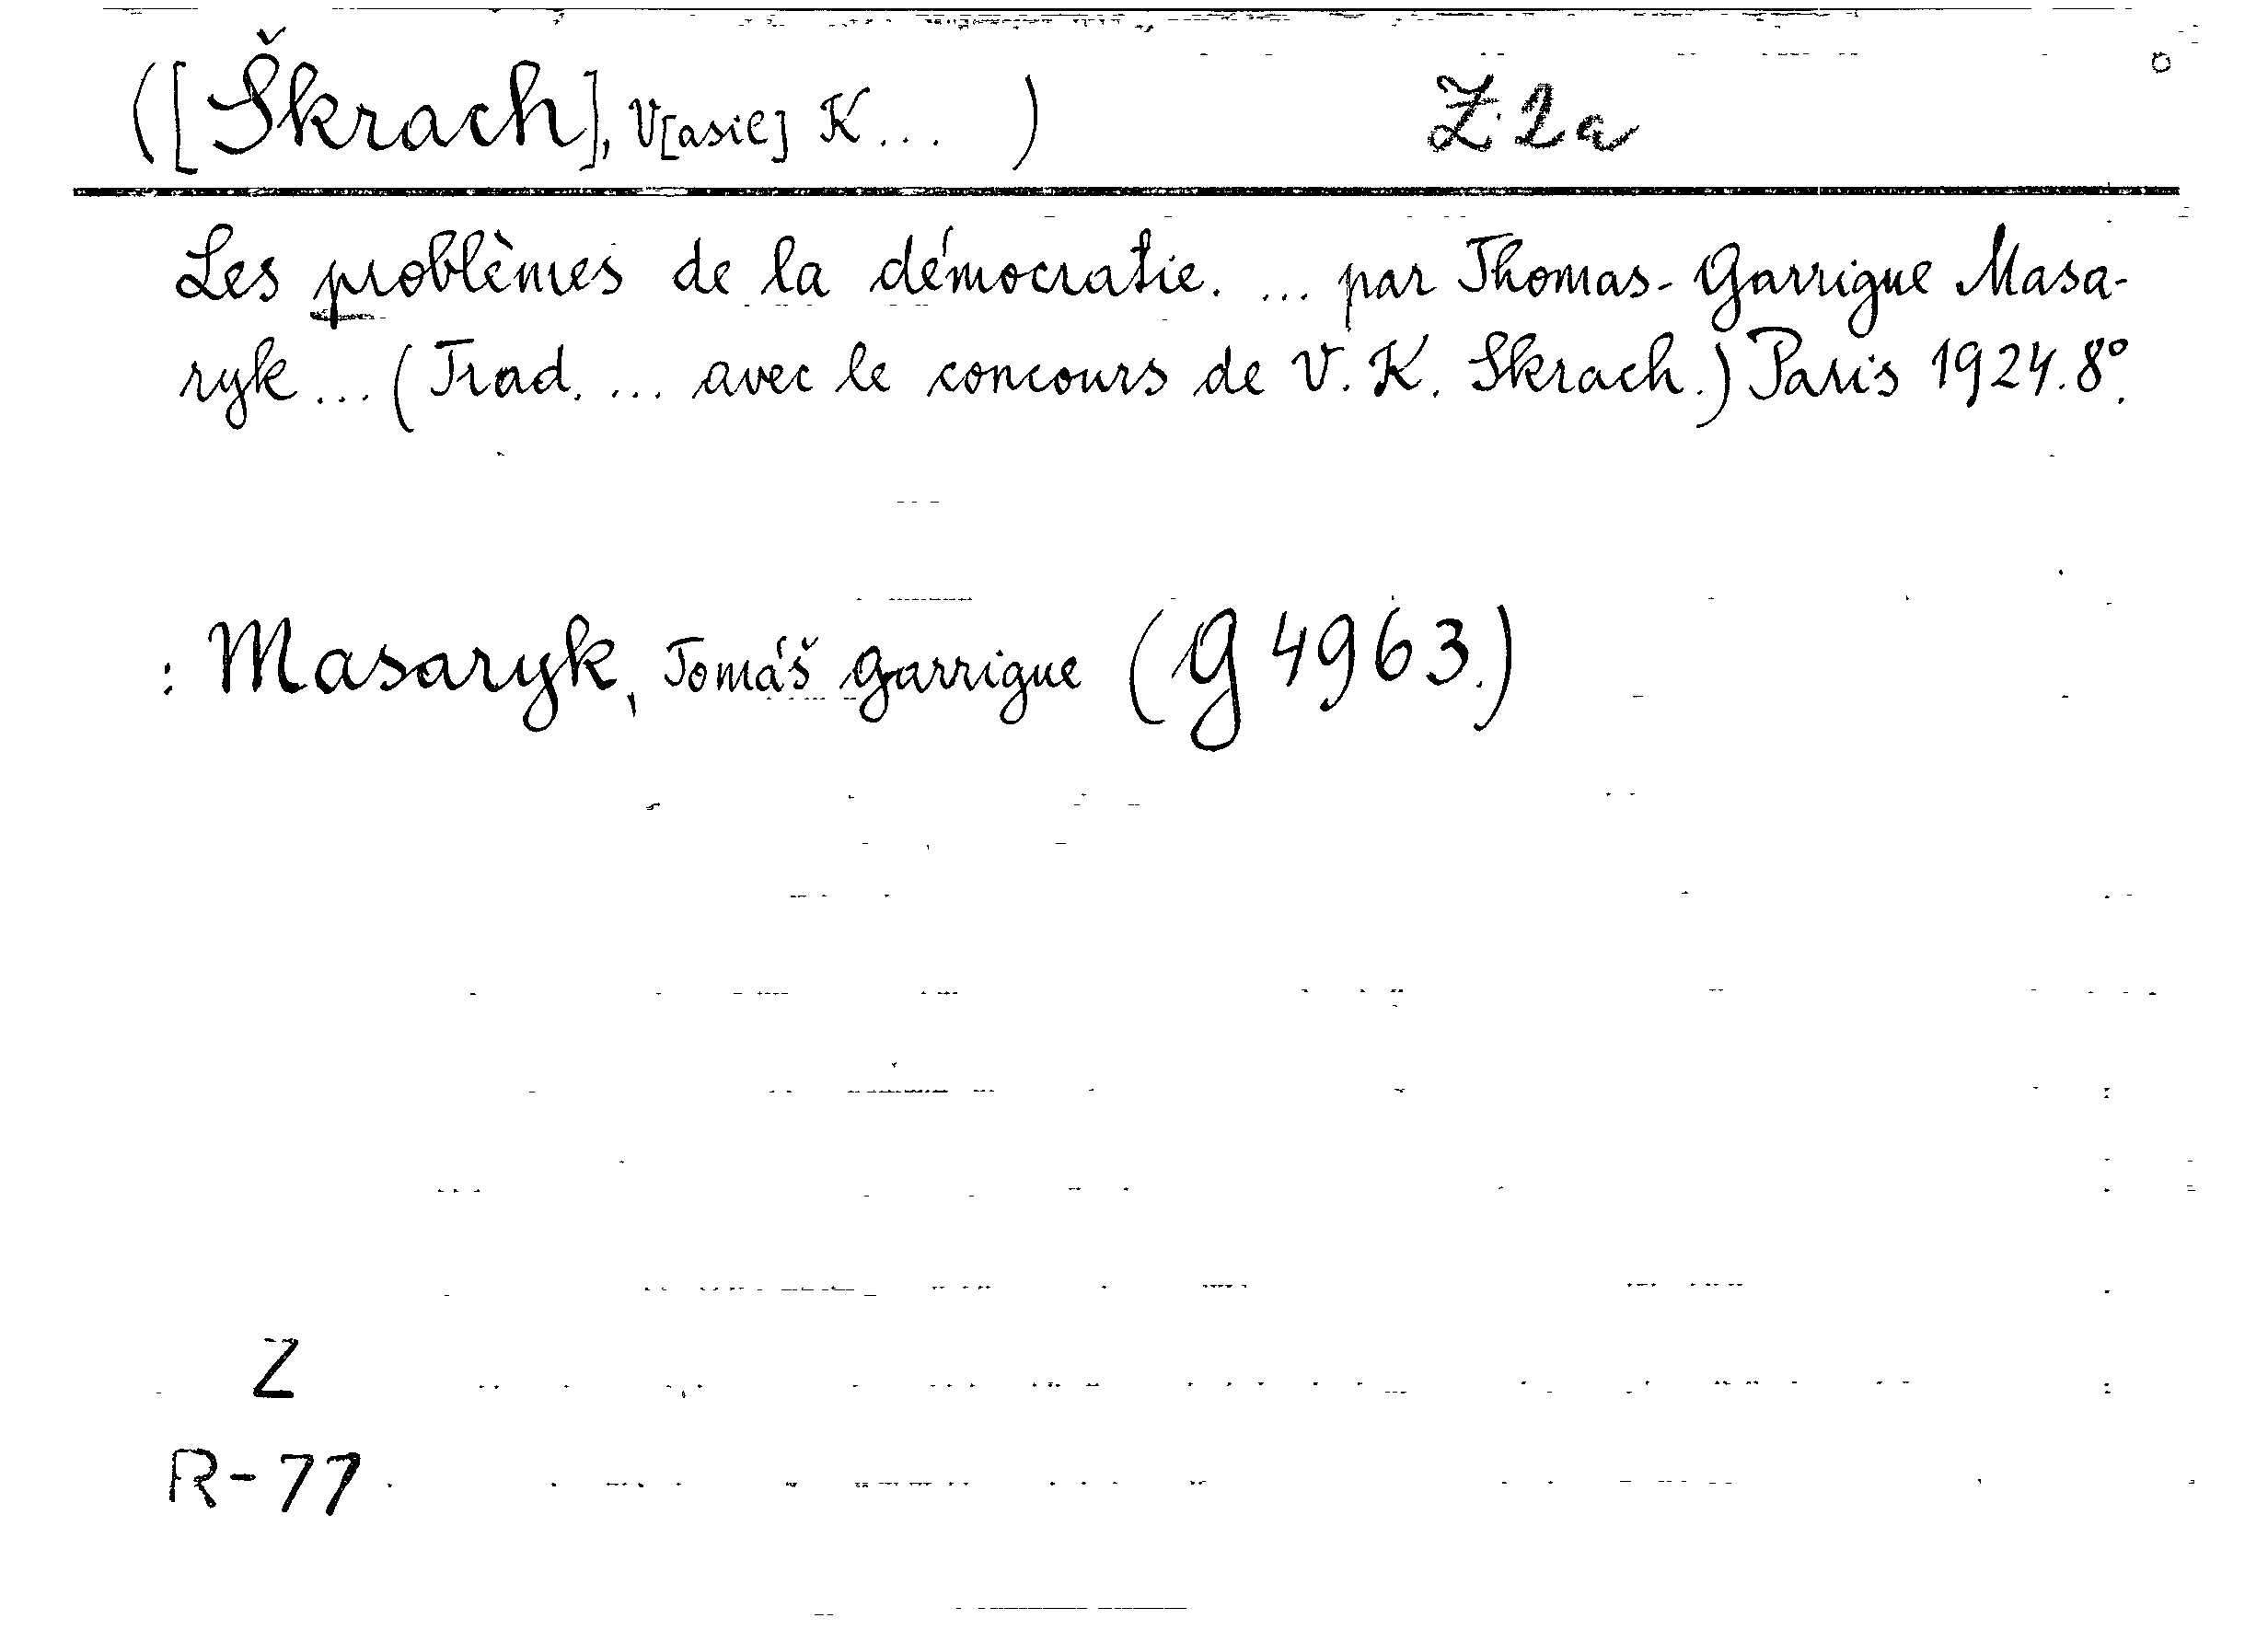 ([Škrach], V[asil] K... ) Z 2a
Les problèmes de la démocratie. ... par Thomas-Garrigue Masa-
ryk ... (Trad. ... avec le concours de V. K. Skrach.) Paris 1924. 8°.
: Masaryk, Tomáš Garrigue (G 4963.)
Z
R-77